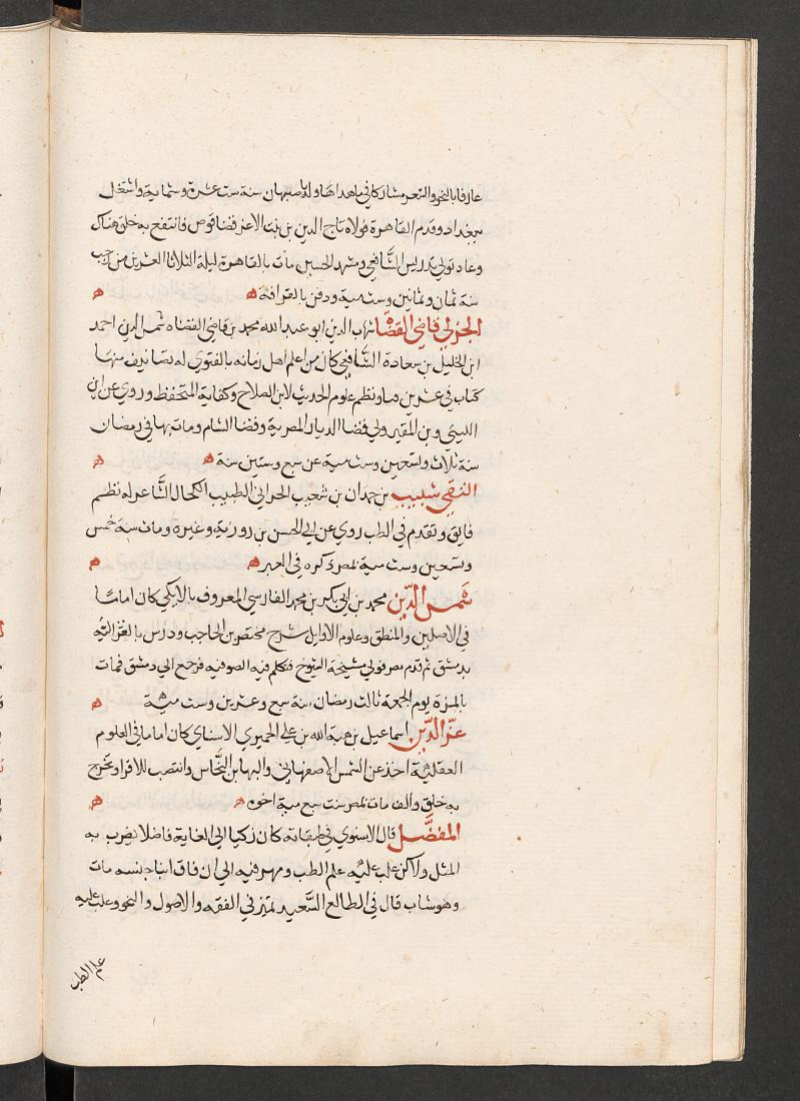 عارفا بالنحو والشعر مشاركا في ما هدا هذا ولد باصبهان سنة ست عشرة وستماية واشتغل
ببغداد وقدم القاهرة فولاه تاج الدين بن بنت الاعز قضا قوص فانتفع به خلق هناك
وعاد تولي تدريس الشافعي ومشهد الحسين مات بالقاهرة ليلة الثلاثا العشرين من رجب
سنة ثمان وثمانين وست مية ودفن بالقرافة ه ه
الخولي قاضي القضاة شهاب الدين ابو عبد الله محمد بن قاضي القضاه شمس الدين احمد
ابن الخليل بن سعادة الشافعي كان من اعلم اهل زمانه بالفتوي له تصانيف منها
كتاب في عشرين فنا ونظم علوم الحديث لابن الصلاح وكفاية المتحفظ وروي عن ابن
الليثي وبن المقير ولي قضا الديار المصرية وقضا الشام ومات بها في رمضان
سنة ثلاث وتسعين وست مية عن سبع وستين سنة ه ه
التقي شبيب بن حمدان بن شعيب الحراني الطبيب الكحال الشاعر له نظم
فايق وتقدم في الطب روي عن ابي الحسن بن روزبة وغيره ومات سنة خمس
وتسعين وست مية بمصر ذكره في العبر ه ه
شمس الدين محمد بن ابي بكر بن محمد الفارسي المعروف بالايكي كان اماما
في الاصلين والمنطق وعلوم الاوايل شرح مختصر بن الحاجب ودرس بالغزالية
بدمشق ثم قدم مصر فولي مشيخة الشيوخ فتكلم فيه الصوفيه فرجع الي دمشق فمات
بالمزة يوم الجمعة ثالث رمضان سنة سبع وعشرين وست مية ه
عز الدين اسماعيل بن هبة الله بن علي الحميري الاسناي كان اماما في العلوم
العقلية اخذ عن الشمس الاصفهاني والبها بن النحاس وانتصب للاقرا وتخرج
به خلق والف مات بمصر سنة سبع مية اخوه ه ه
المفضل قال الاسنوي في طبقاته كان زكيا الي الغاية فاضلا يضرب به
المثل ولاكن غلب عليه علم الطب ومهر فيه الي ان فاق ابنا جنسه مات
وهو شاب قال في الطالع السعيد تميز في الفقه والاصول والنحو وغلب عليه
علم الطب